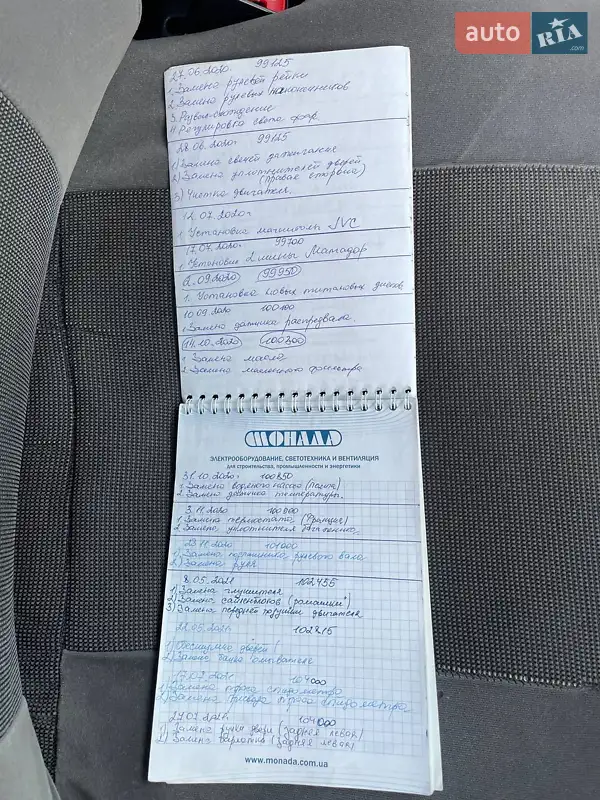 auto RIA.com
27.06.2020. 99125
1. Замена рулевой рейки
2. Замена рулевых наконечников
3. Развал-схождение
4. Регулировка света фар.
28.06.2020г. 99125
1) Замена свечей зажигания
2) Замена уплотнителей дверей
(Правая сторона)
3) Чистка двигателя.
12.07.2020г.
1. Установка магнитолы JVC
17.07.2020г. 99700
1. Установка 2 шины Матадор
2.09.2020 99950
1. Установка новых титановых дисков
10.09.2020 100100
1. Замена датчика распредвала.
14.10.2020 100300
1. Замена масла
2. Замена масляного фильтра
МОНАДА
ЭЛЕКТРООБОРУДОВАНИЕ, СВЕТОТЕХНИКА И ВЕНТИЛЯЦИЯ
для строительства, промышленности и энергетики
31.10.2020г. 100850
1. Замена водяного насоса (помпа)
2. Замена датчика температуры.
3.11.2020 100900
1. Замена термостата (Франция)
2. Замена уплотнителя
23.11.2020 101000
1) Замена подшипника рулевого вала
2) Замена руля
8.05.2021 102455
1) Замена глушителя
2) Замена сайлентблоков (ромашки)
3) Замена передней подушки двигателя
22.05.2021г 102815
1) дверей
2) Замена бачка омывателя
17.07.2021 104000
1) Замена троса спидометра
2) Замена привода троса спидометра
27.07.2021г. 104000
1) Замена ручки двери (Задняя левая)
2) Замена (Задняя левая)
www.monada.com.ua